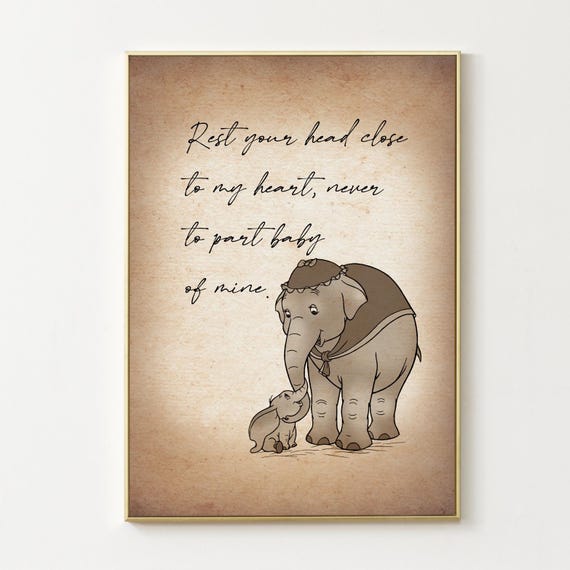 Rest your head close
to my heart, never
to part baby
of mine.